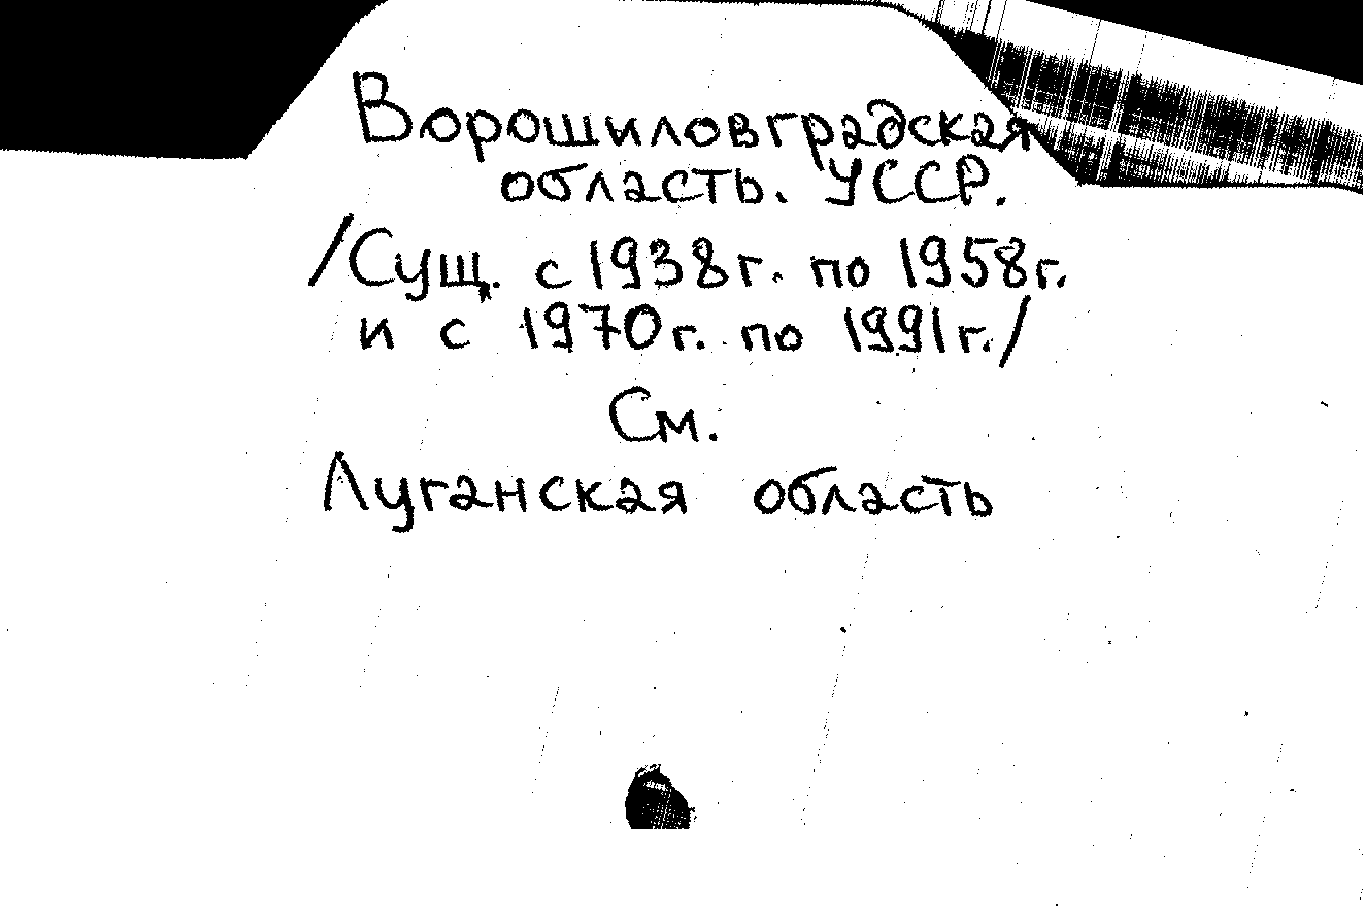 Ворошиловградская
область. УССР.
/Сущ. с 1938г. по 1958г.
и с 1970г. по 1991г./
См.
Луганская область